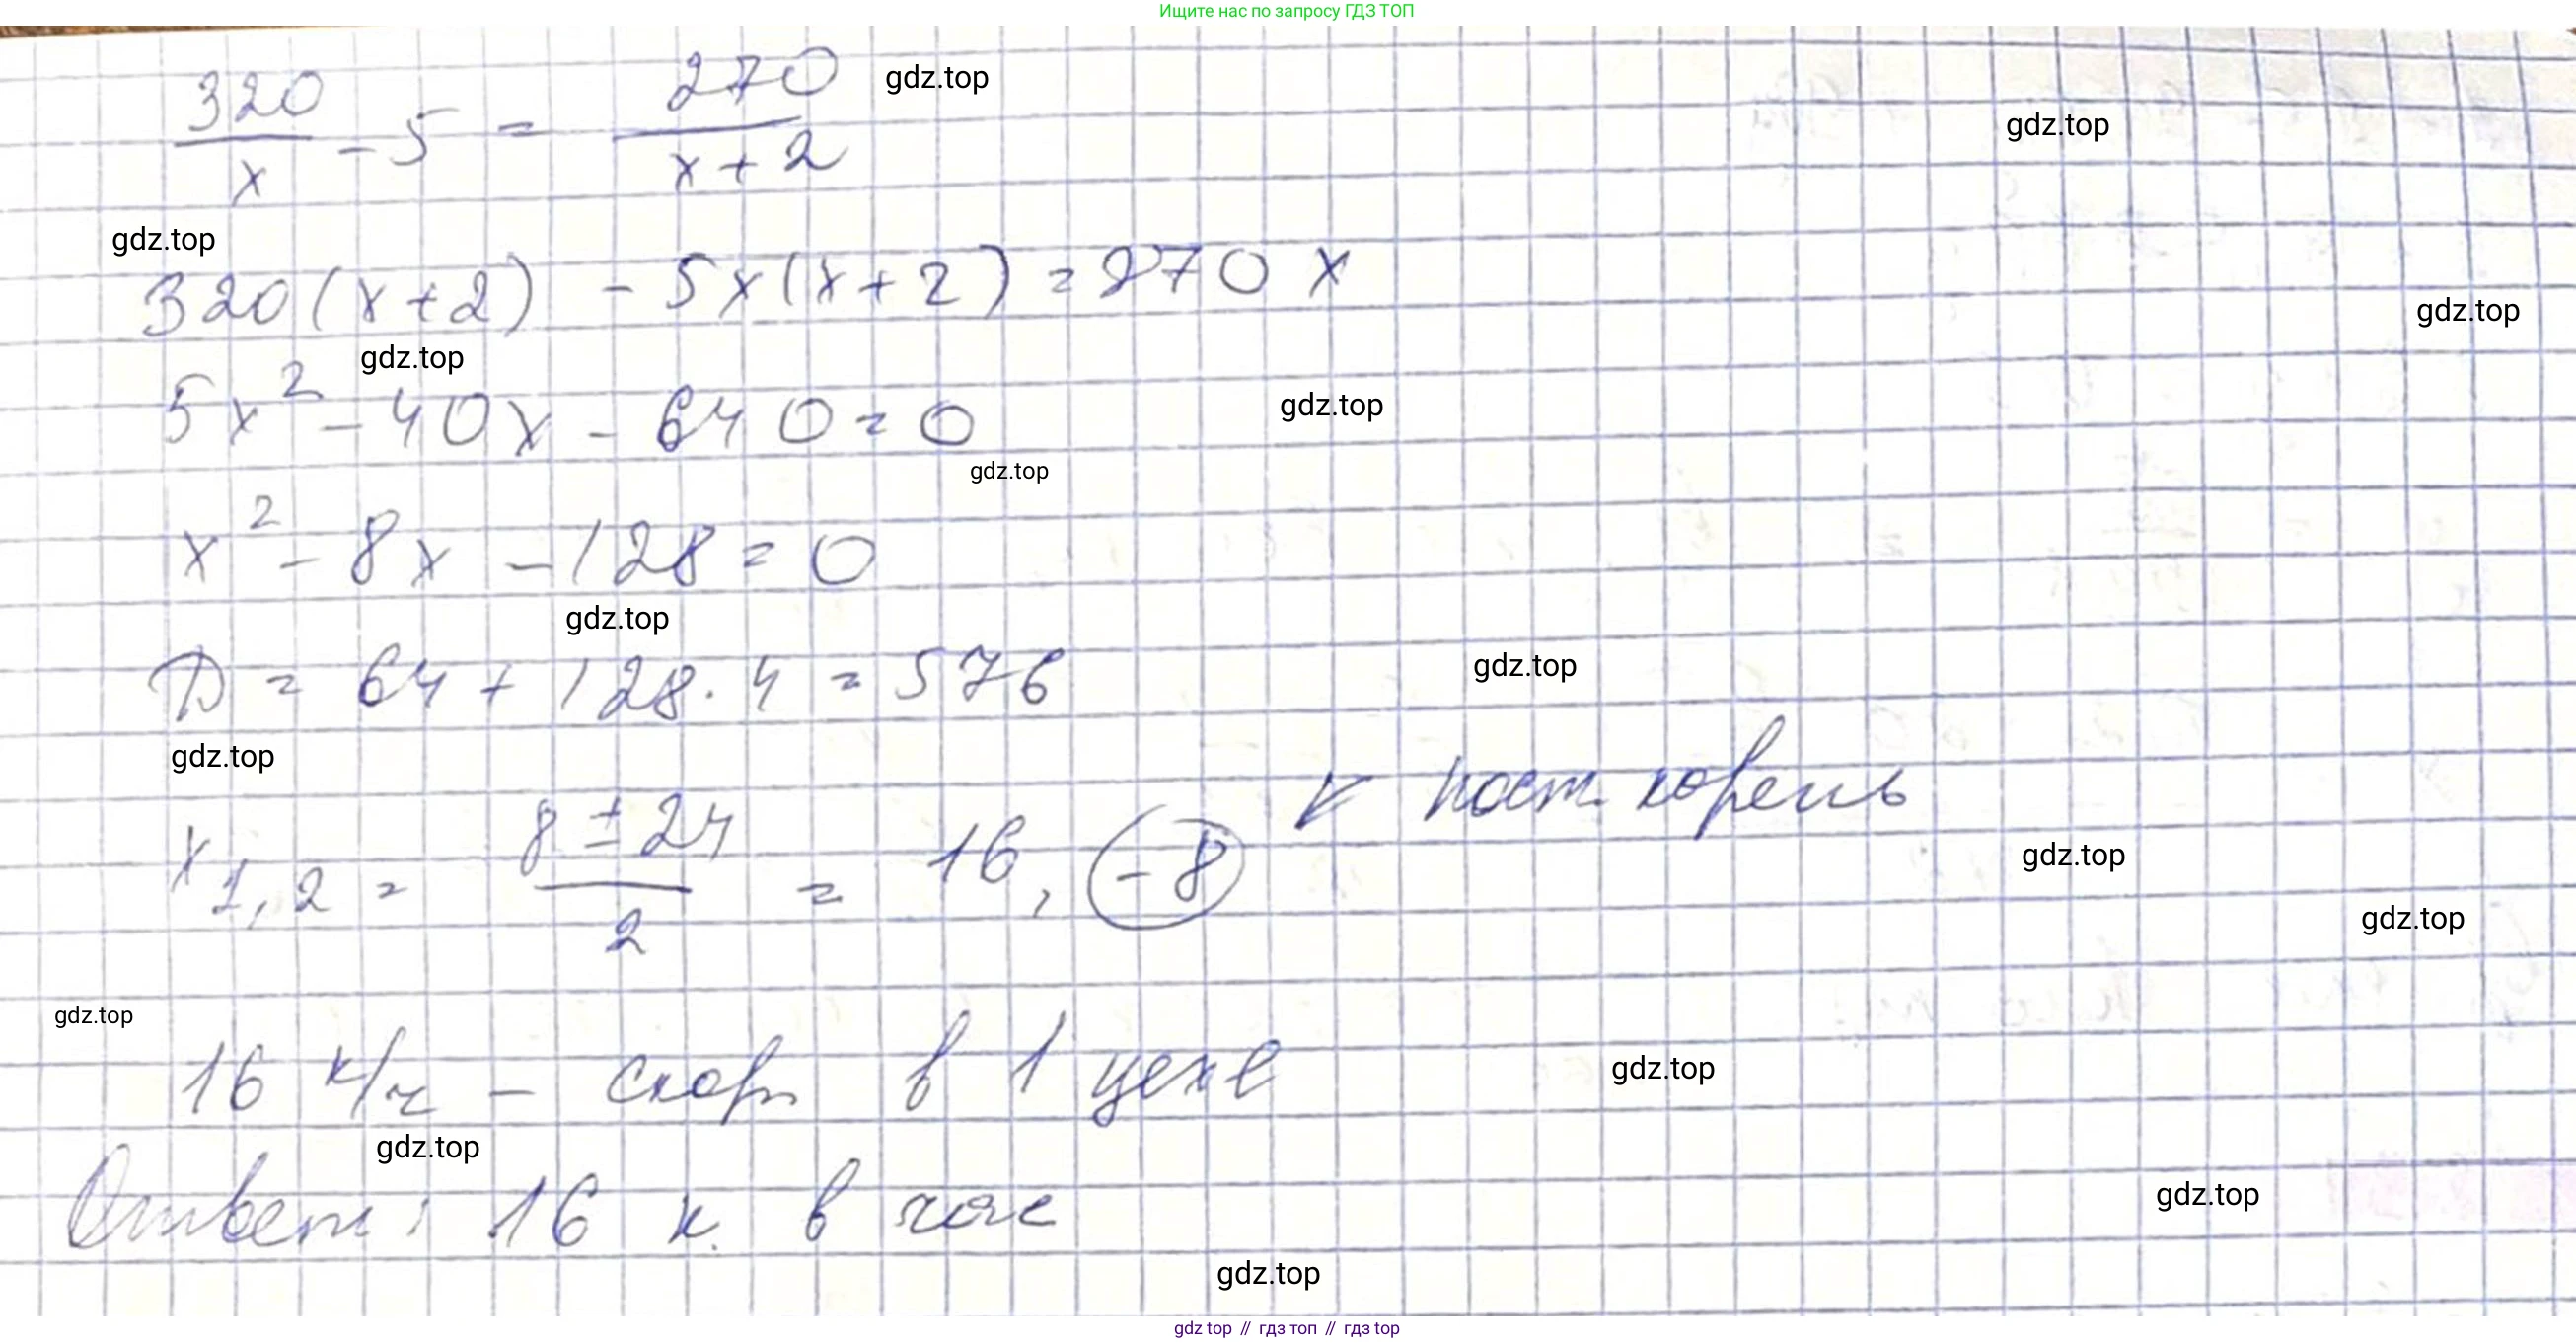 Ищите нас по запросу ГДЗ ТОП
320/x - 5 = 270/(x+2)
gdz.top
gdz.top
gdz.top
320(x+2) - 5x(x+2) = 270x
gdz.top
gdz.top
5x² - 40x - 640 = 0
gdz.top
gdz.top
x² - 8x - 128 = 0
gdz.top
D = 64 + 128·4 = 576
gdz.top
gdz.top
x₁,₂ = (8 ± 24)/2 = 16, -8 пост. корень
gdz.top
gdz.top
gdz.top
16 к/ч - скор в 1 цехе
gdz.top
gdz.top
Ответ: 16 к. в час
gdz.top
gdz.top
gdz top // гдз топ // гдз top